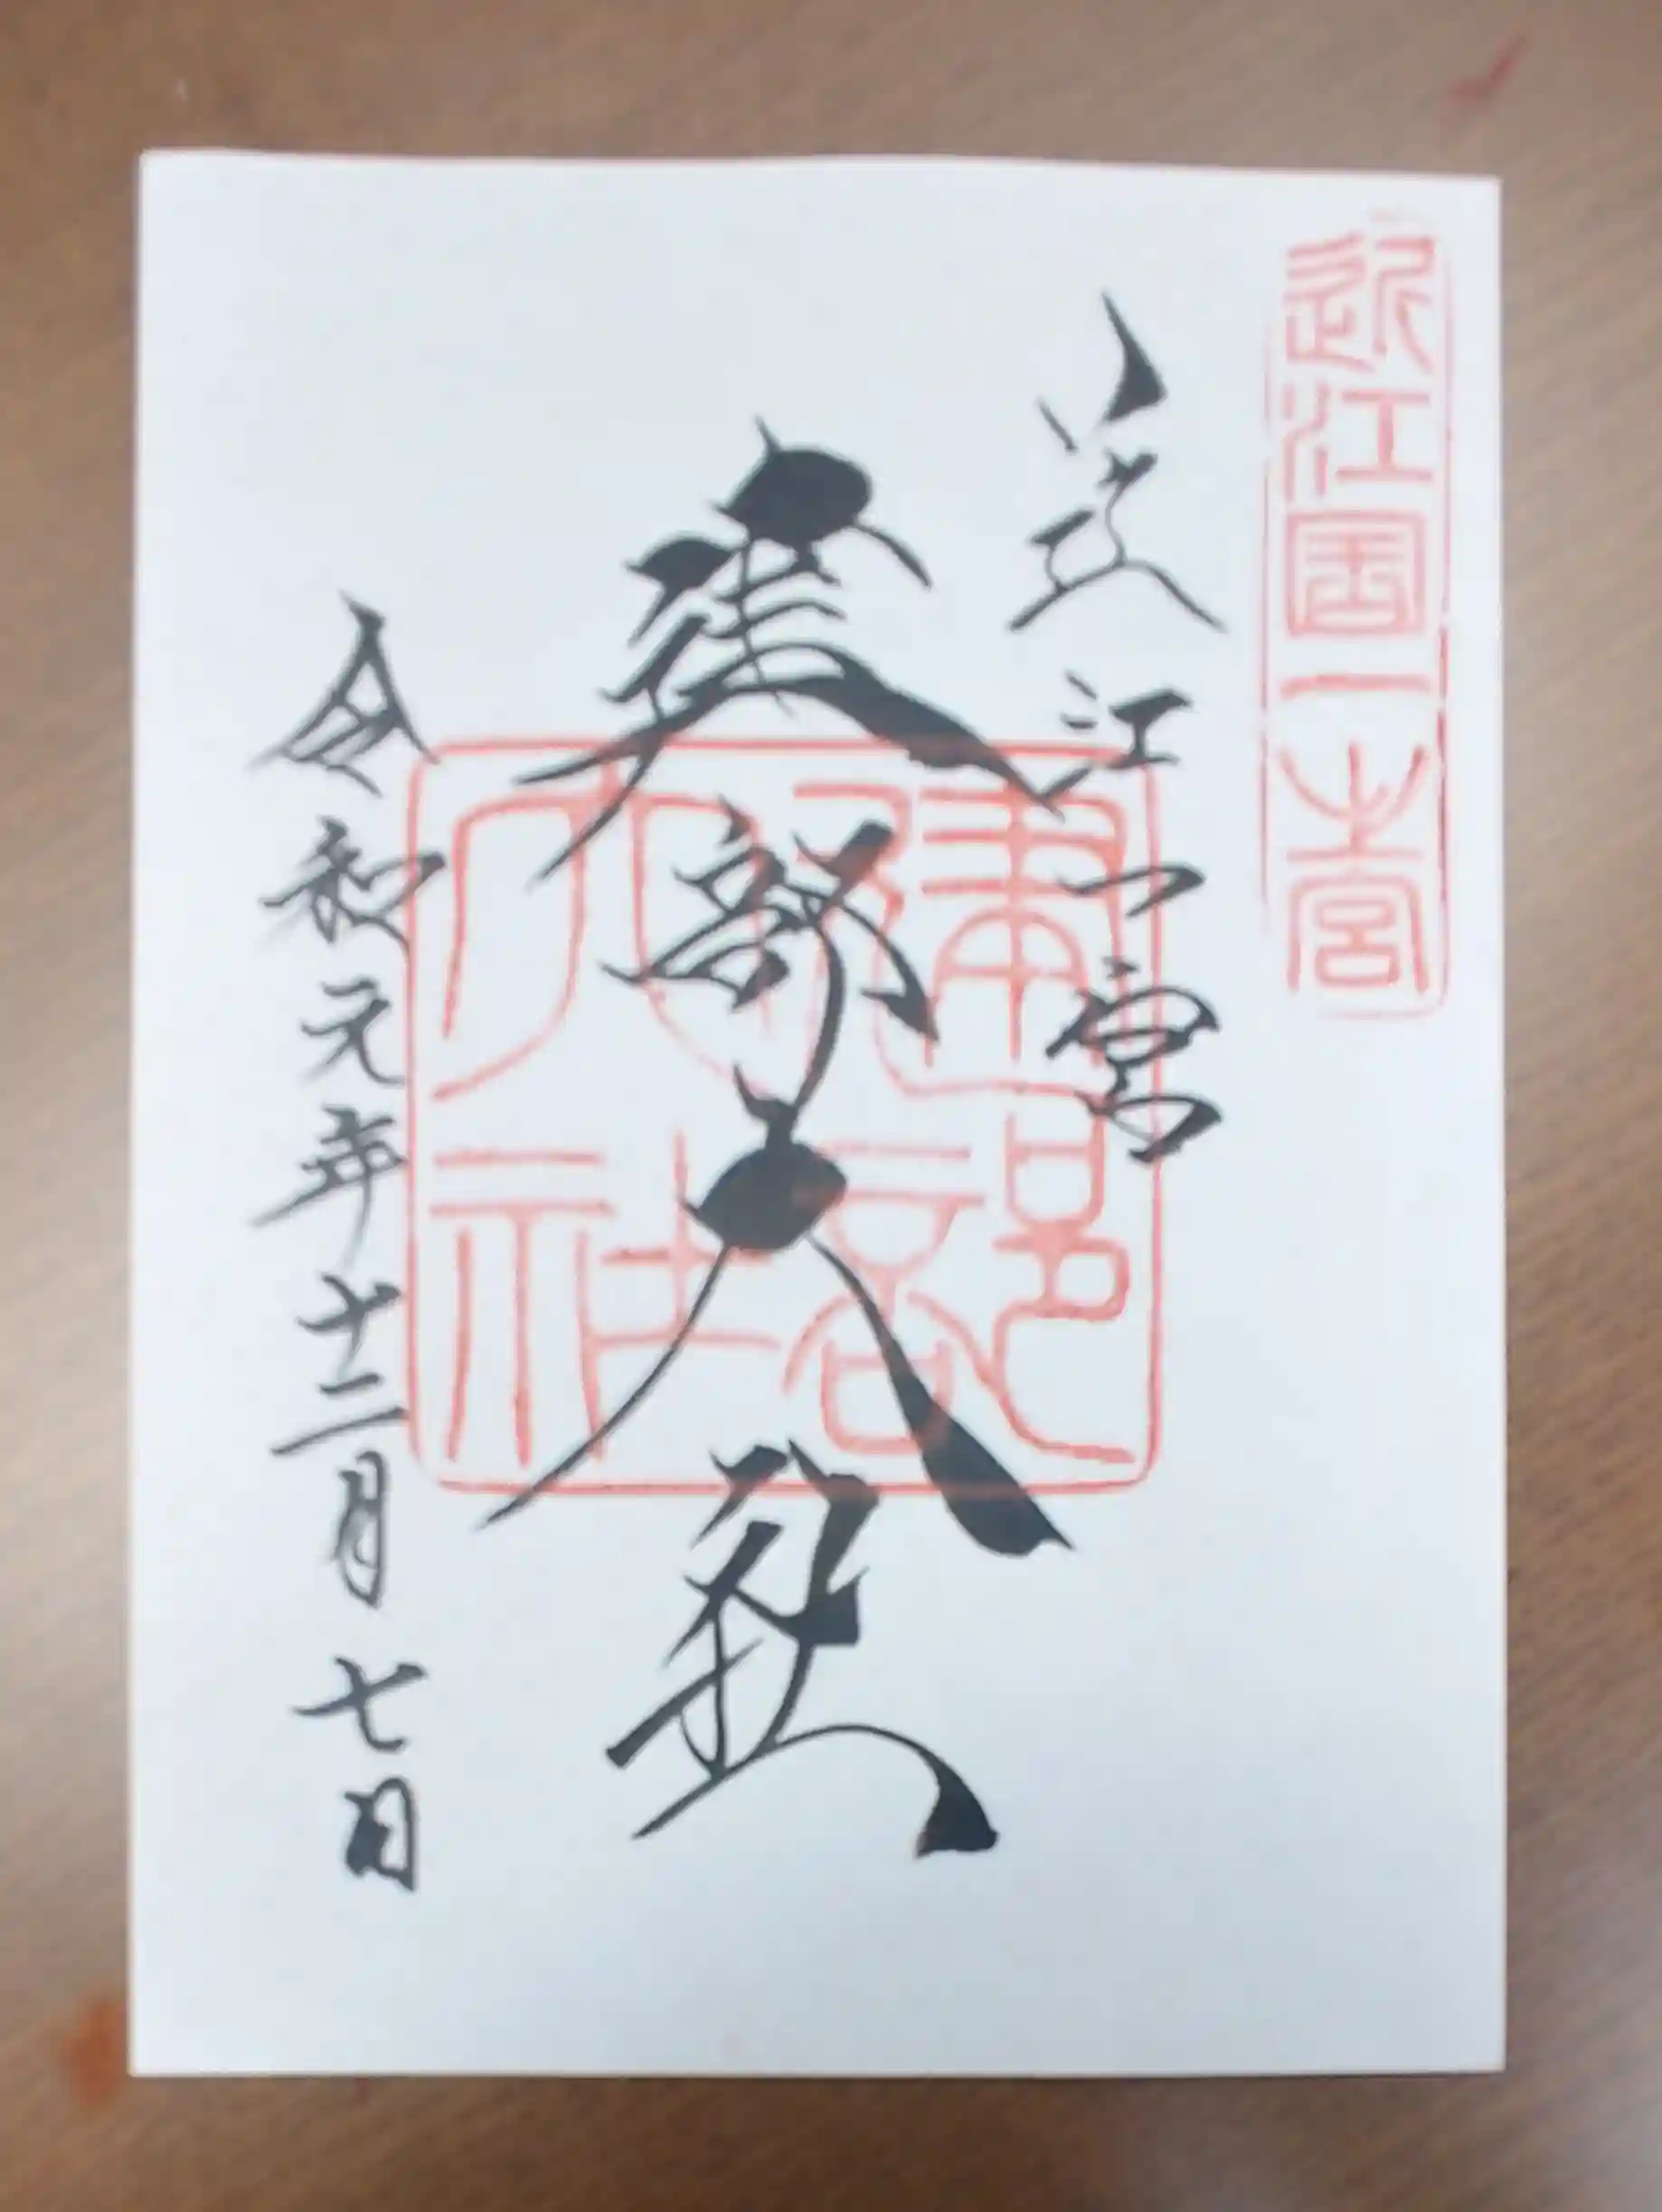 近江国一之宮
近江一宮
建部大社
建部大社
令和元年十二月七日